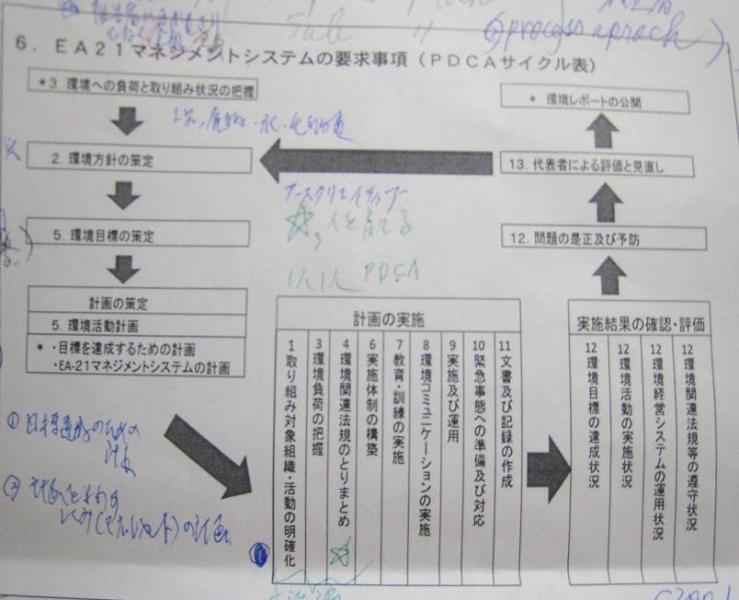 process aprach
6. EA21マネジメントシステムの要求事項(PDCAサイクル表)
*3. 環境への負荷と取り組み状況の把握
* 環境レポートの公開
2. 環境方針の策定
13. 代表者による評価と見直し
アースクリエイティブー
人を育てる
5. 環境目標の策定
12. 問題の是正及び予防
1人1人 PDCA
計画の策定
5. 環境活動計画
* ・目標を達成するための計画
・EA-21マネジメントシステムの計画
計画の実施
1 取り組み対象組織・活動の明確化
3 環境負荷の把握
4 環境関連法規のとりまとめ
6 実施体制の構築
7 教育・訓練の実施
8 環境コミュニケーションの実施
9 実施及び運用
10 緊急事態への準備及び対応
11 文書及び記録の作成
実施結果の確認・評価
12 環境目標の達成状況
12 環境活動の実施状況
12 環境経営システムの運用状況
12 環境関連法規等の遵守状況
① 目標達成のための
計画
②
の計画
①